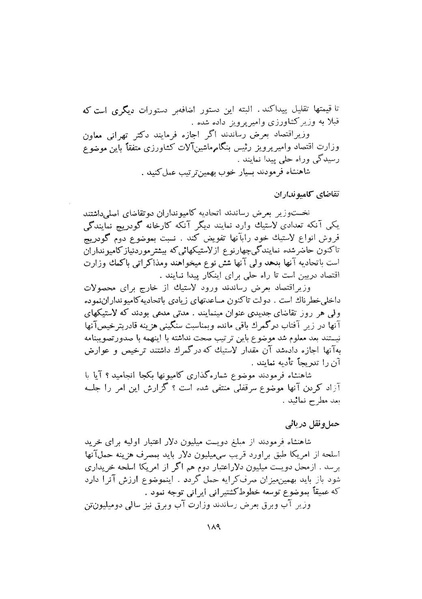 تا قیمتها تقلیل پیداکند. البته این دستور اضافه‌بر دستورات دیگری است که
قبلا به وزیر کشاورزی وامیرپرویز داده شده .
وزیراقتصاد بعرض رساندند اگر اجازه فرمایند دکتر تهرانی معاون
وزارت اقتصاد وامیرپرویز رئیس بنگاه‌ماشین‌آلات کشاورزی متفقاً باین موضوع
رسیدگی وراه حلی پیدا نمایند .
شاهنشاه فرمودند بسیار خوب بهمین‌ترتیب عمل‌کنید .
تقاضای کامیونداران
نخست‌وزیر بعرض رساندند اتحادیه کامیونداران دوتقاضای اصلی‌داشتند
یکی آنکه تعدادی لاستیک وارد نمایند دیگر آنکه کارخانه گودریچ نمایندگی
فروش انواع لاستیک خود رابآنها تفویض کند . نسبت بموضوع دوم گودریچ
تاکنون حاضرشده نمایندگی‌چهارنوع ازلاستیکهائی‌که بیشترموردنیازکامیونداران
است باتحادیه آنها بدهد ولی آنها شش نوع میخواهند ومذاکراتی باکمک وزارت
اقتصاد دربین است تا راه حلی برای اینکار پیدا نمایند .
وزیراقتصاد بعرض رساندند ورود لاستیک از خارج برای محصولات
داخلی‌خطرناک است . دولت تاکنون مساعدتهای زیادی باتحادیه‌کامیونداران‌نموده
ولی هر روز تقاضای جدیدی عنوان مینمایند . مدتی مدعی بودند که لاستیکهای
آنها در زیر آفتاب درگمرک باقی مانده وبمناسبت سنگینی هزینه قادربترخیص‌آنها
نیستند بعد معلوم شد موضوع باین ترتیب صحت نداشته با اینهمه با صدورتصویبنامه
به‌آنها اجازه داده‌شد آن مقدار لاستیک که درگمرک داشتند ترخیص و عوارض
آن را تدریجاً تأدیه نمایند .
شاهنشاه فرمودند موضوع شماره‌گذاری کامیونها بکجا انجامید ؟ آیا با
آزاد کردن آنها موضوع سرقفلی منتفی شده است ؟ گزارش این امر را جلسه
بعد مطرح نمائید .
حمل‌ونقل دریائی
شاهنشاه فرمودند از مبلغ دویست میلیون دلار اعتبار اولیه برای خرید
اسلحه از امریکا طبق برآورد قریب سی‌میلیون دلار باید بمصرف هزینه حمل‌آنها
برسد . ازمحل دویست میلیون دلاراعتبار دوم هم اگر از امریکا اسلحه خریداری
شود باز باید بهمین‌میزان صرف‌کرایه حمل گردد . اینموضوع ارزش آنرا دارد
که عمیقاً بموضوع توسعه خطوط‌کشتیرانی ایرانی توجه نمود .
وزیر آب وبرق بعرض رساندند وزارت آب وبرق نیز سالی دومیلیون‌تن
۱۸۹